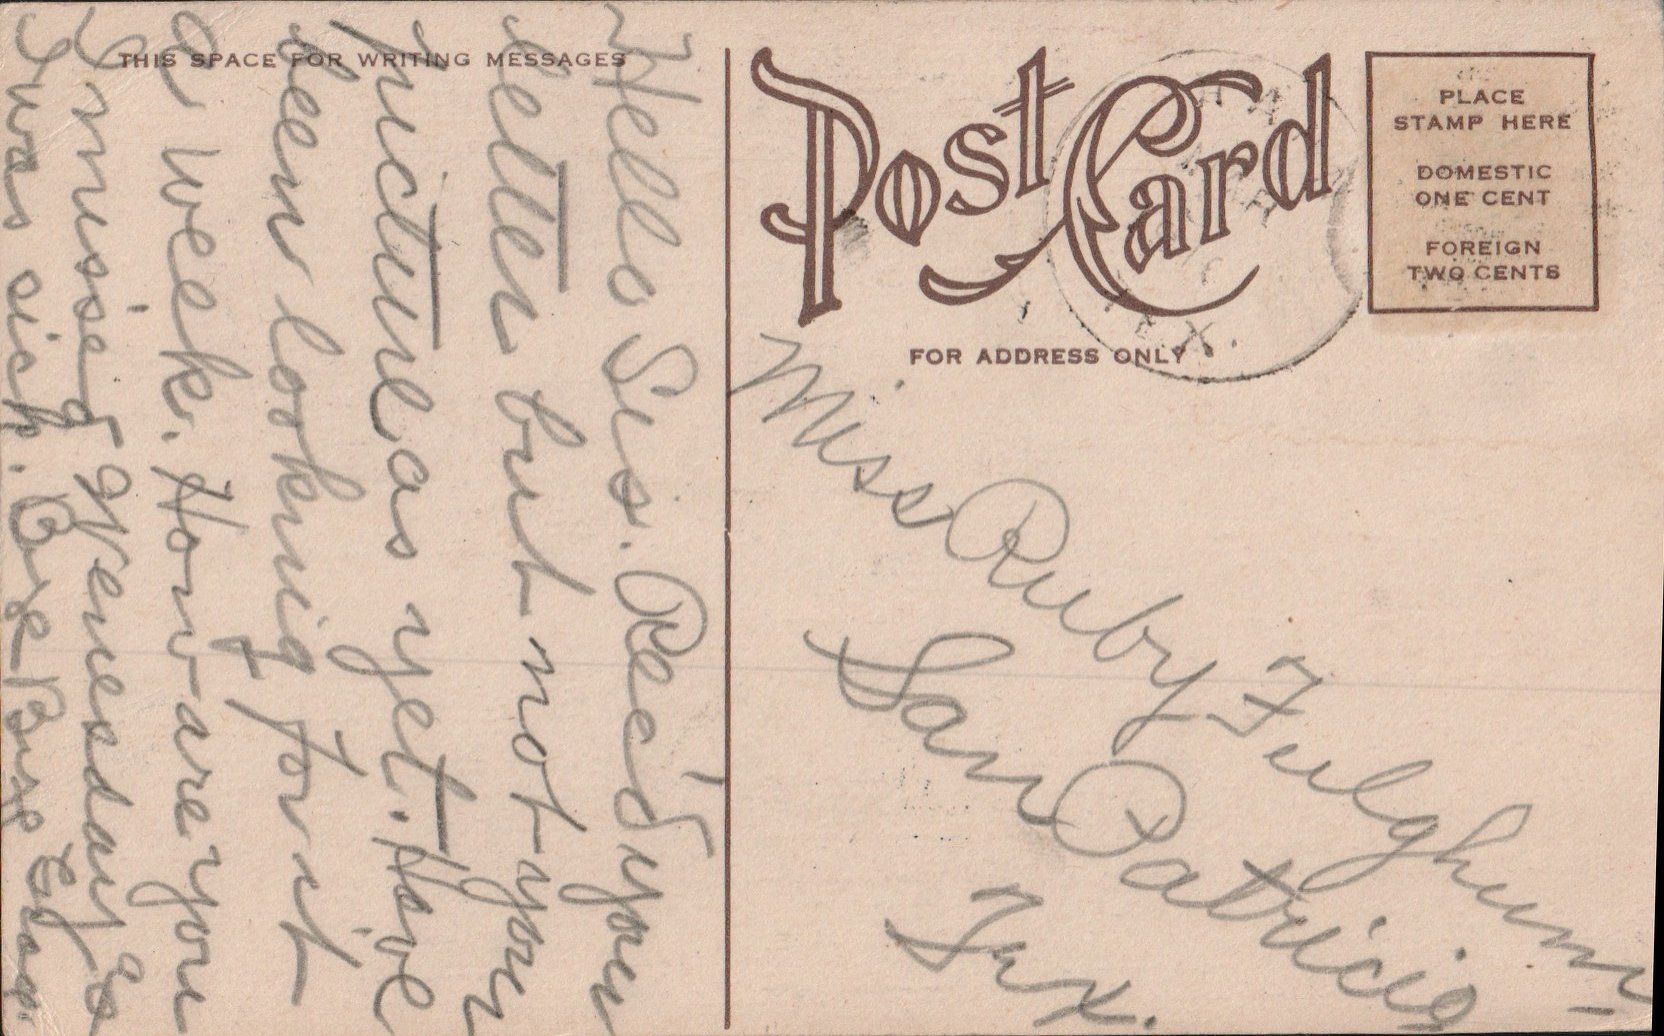 THIS SPACE FOR WRITING MESSAGES
Hello Sis. Rec'd your
letter but not your
picture as yet. Have
been looking for it
a week. How are you
I missed Wenesday &
I was sick. Bye Bye
Post Card
PLACE
STAMP HERE
DOMESTIC
ONE CENT
FOREIGN
TWO CENTS
TEX.
FOR ADDRESS ONLY
Miss Ruby Fulghum
San Patricio
Tex.